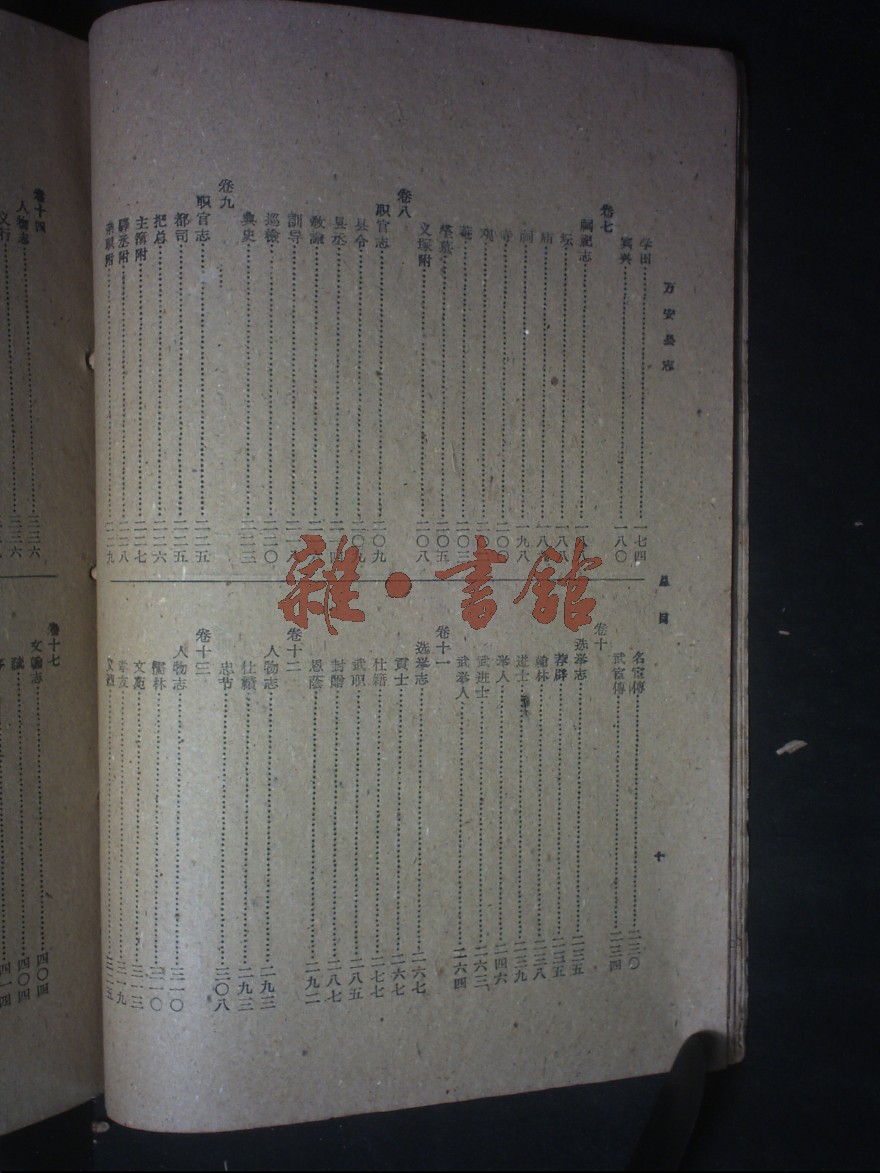 万安县志
总目
十
学田 一七四
宾兴 一八〇
卷七
祠祀志
坛 一八八
庙
祠 一九八
寺 二〇〇
观
庵 二〇三
茔墓 二〇五
义塚附 二〇八
卷八
职官志 二〇九
县令 二〇九
县丞
教諭
訓导
巡檢 二二〇
典史 二二三
卷九
职官志 二二五
都司 二二五
把总 二二六
主簿附 二二七
驛丞附 二二八
名宦傳 二三〇
武宦傳 二三四
卷十
选举志 二三五
荐辟 二三五
翰林 二三八
进士 二三九
举人 二四六
武进士 二六三
武举人 二六四
卷十一
选举志 二六七
貢士 二六七
仕籍 二七七
武职 二八五
封贈 二八七
恩蔭 二九二
卷十二
人物志 二九三
仕績 二九三
忠节 三〇八
卷十三
人物志 三一〇
儒林 三一〇
文苑 三一三
孝友 三一九
卷十四
人物志 三三六
义行 三三六
卷十七
文翰志 四〇四
疏 四〇四
四一四
雜·書館